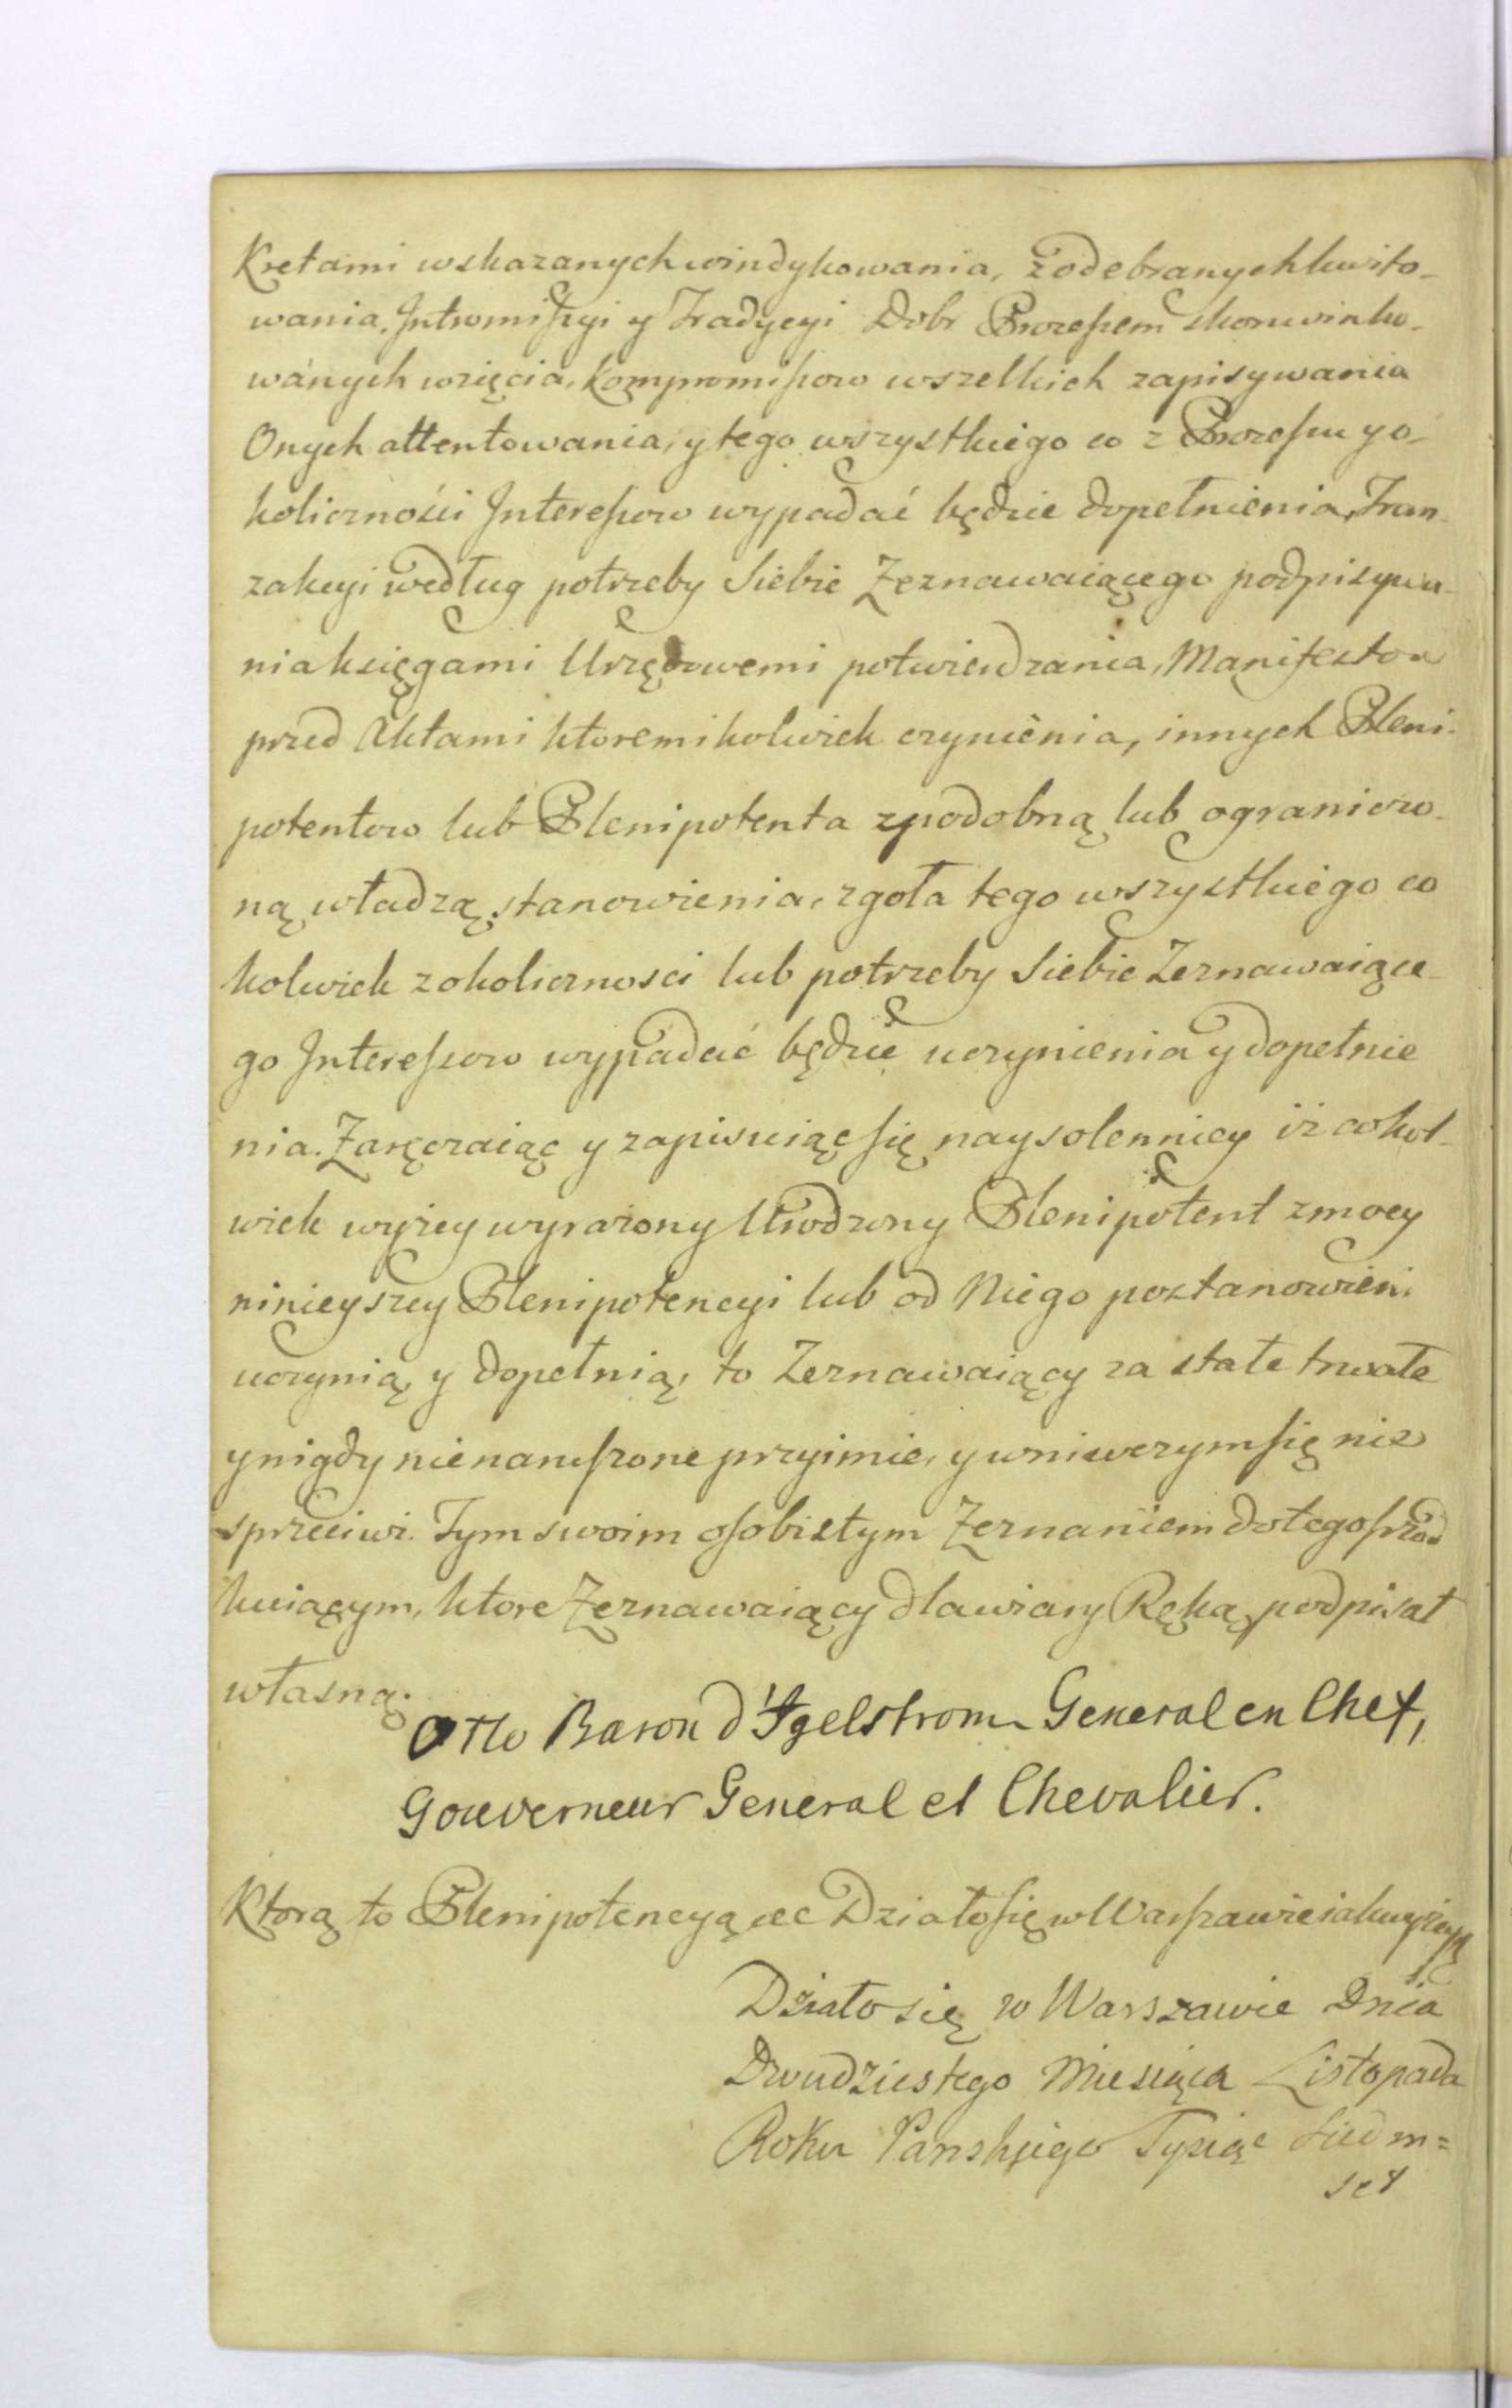 Kretami wskazanych windykowania, z odebranych kwito-
wania, Intromissyi y Tradycyi Dobr Processem skonwinko-
wanych wzięcia, Kompromissow wszelkich zapisywania
Onych attentowania, y tego wszystkiego co z Processu y o-
kolicznosci Interessow wypadać będzie dopełnienia, Tran-
zakcyi według potrzeby Siebie Zeznawaiącego podpisywa-
nia księgami Urzędowemi potwierdzania, Manifestow
przed Aktami ktoremikolwiek czynienia, innych Pleni-
potentow lub Plenipotenta z podobną lub ograniczo-
ną władzą stanowienia, zgoła tego wszystkiego co
kolwiek z okolicznosci lub potrzeby Siebie Zeznawaiące-
go Interessow wypadać będzie uczynienia y dopełnie
nia. Zaręczaiąc y zapisuiąc się naysolenniey iż cokol-
wiek wyżey wyrażony Urodzony Plenipotent z mocy
ninieyszey Plenipotencyi lub od Niego postanowieni
uczynią y dopełnią, to Zeznawaiący za stałe trwałe
y nigdy nienaruszone przyimie, y w niczym się nie
sprzeciwi. Tym swoim osobistym Zeznaniem do tego szrod
kuiącym, ktore Zeznawaiący dla wiary Ręką podpisał
własną.
Otto Baron d'Igelstrom General en Chef,
Gouverneur General et Chevalier.
Ktorą to Plenipotencyą etc Działo się w Warszawie iak wyżey
Działo się w Warszawie Dnia
Dwudziestego Miesiąca Listopada
Roku Panskiego Tysiąc Siedm=
set